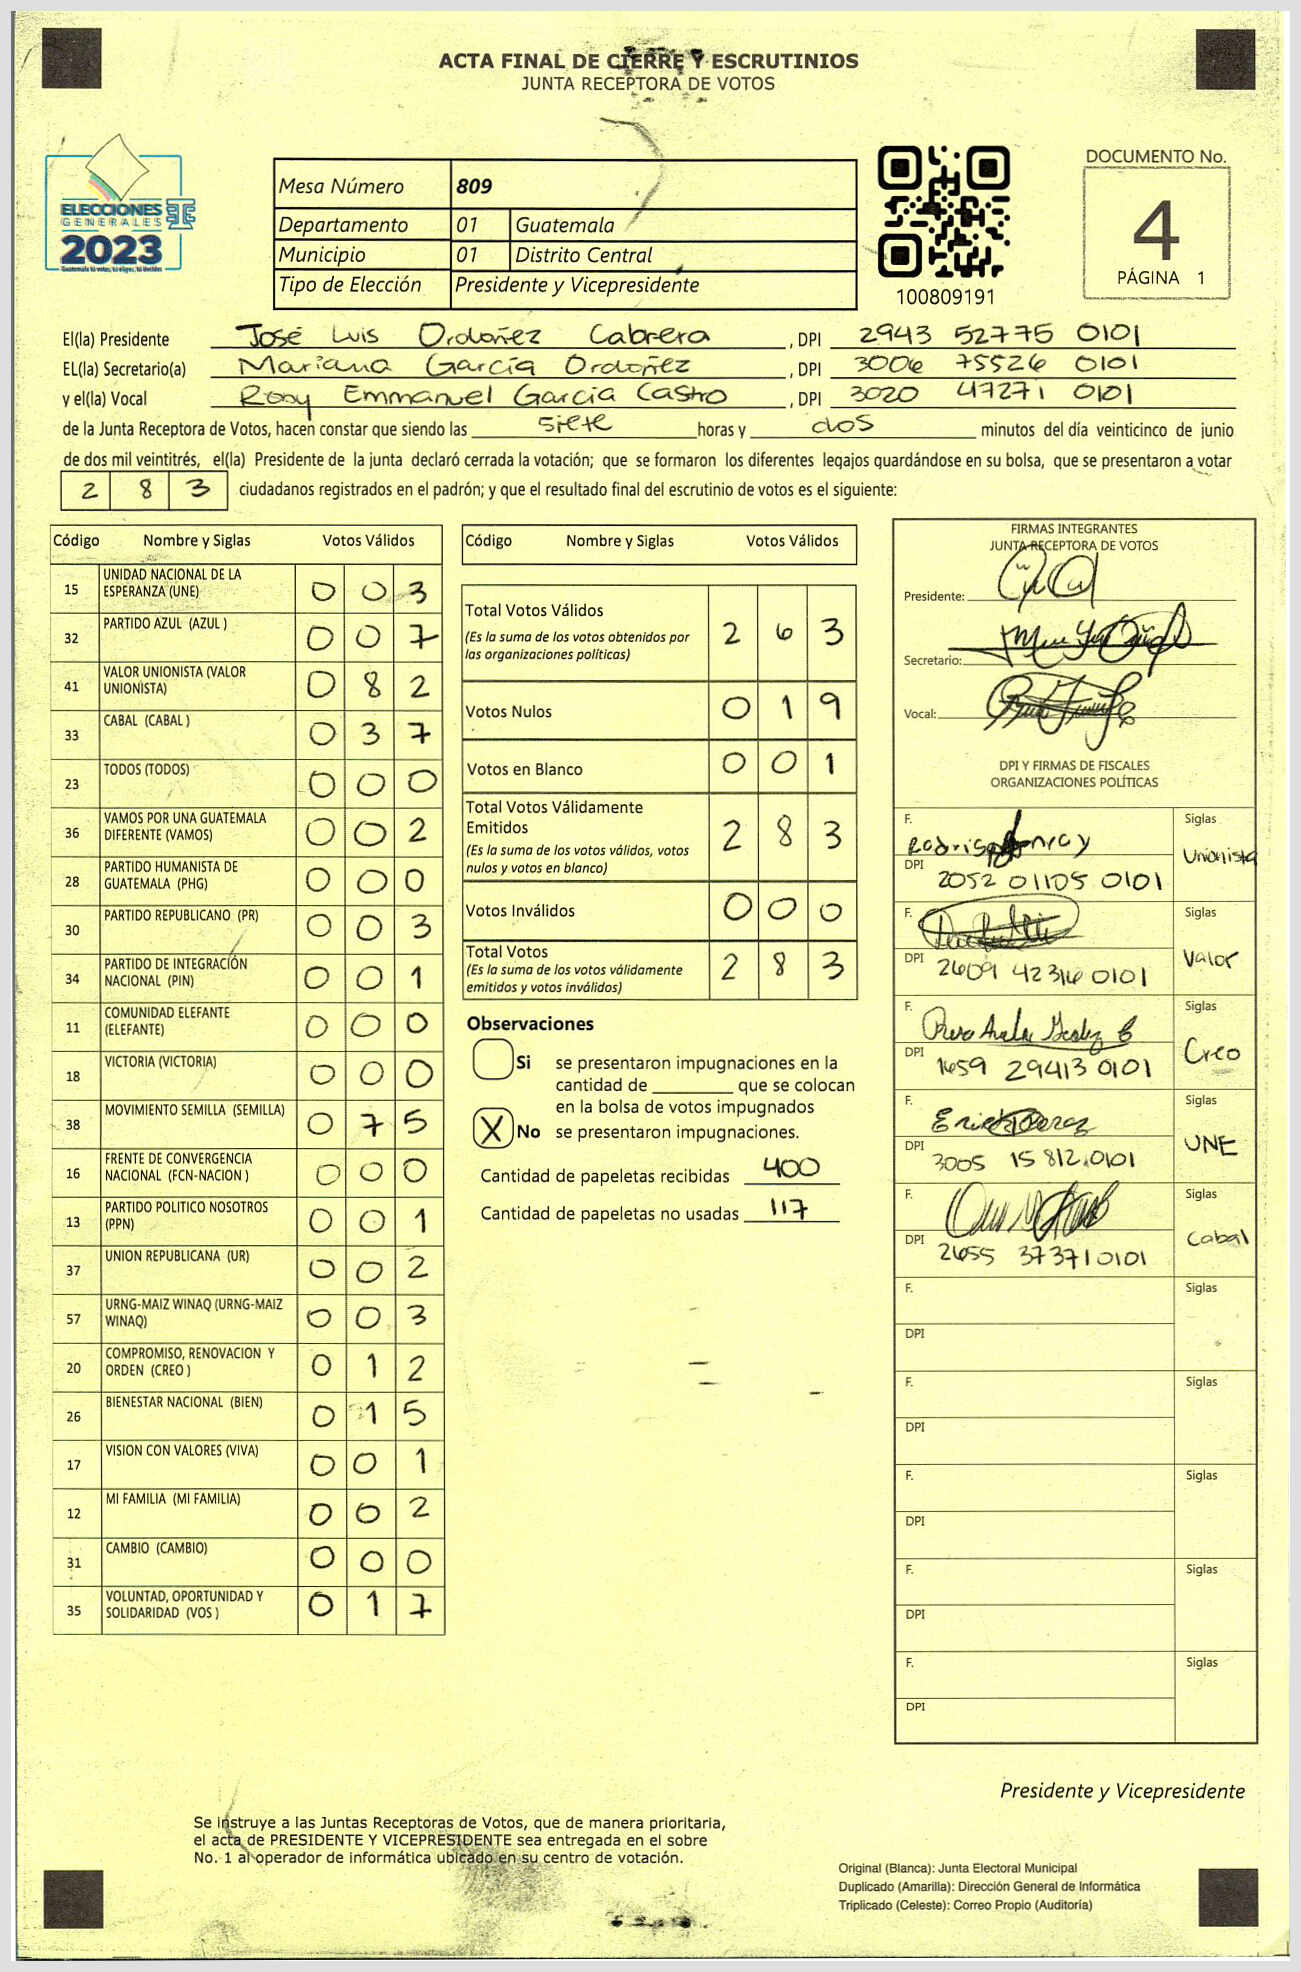 ACTA FINAL DE CIERRE Y ESCRUTINIOS
JUNTA RECEPTORA DE VOTOS
ELECCIONES
GENERALES
2023
Guatemala tú votas, tú eliges, tú decides
Mesa Número 809
Departamento 01 Guatemala
Municipio 01 Distrito Central
Tipo de Elección Presidente y Vicepresidente
100809191
DOCUMENTO No.
4
PÁGINA 1
El(la) Presidente José Luis Ordoñez Cabrera , DPI 2943 52775 0101
EL(la) Secretario(a) Mariana García Ordoñez , DPI 3006 75526 0101
y el(la) Vocal Rony Emmanuel García Castro , DPI 3020 47271 0101
de la Junta Receptora de Votos, hacen constar que siendo las siete horas y dos minutos del día veinticinco de junio
de dos mil veintitrés, el(la) Presidente de la junta declaró cerrada la votación; que se formaron los diferentes legajos guardándose en su bolsa, que se presentaron a votar
2 8 3 ciudadanos registrados en el padrón; y que el resultado final del escrutinio de votos es el siguiente:
Código Nombre y Siglas Votos Válidos
15 UNIDAD NACIONAL DE LA
ESPERANZA (UNE) 0 0 3
32 PARTIDO AZUL (AZUL ) 0 0 7
41 VALOR UNIONISTA (VALOR
UNIONISTA) 0 8 2
33 CABAL (CABAL ) 0 3 7
23 TODOS (TODOS) 0 0 0
36 VAMOS POR UNA GUATEMALA
DIFERENTE (VAMOS) 0 0 2
28 PARTIDO HUMANISTA DE
GUATEMALA (PHG) 0 0 0
30 PARTIDO REPUBLICANO (PR) 0 0 3
34 PARTIDO DE INTEGRACIÓN
NACIONAL (PIN) 0 0 1
11 COMUNIDAD ELEFANTE
(ELEFANTE) 0 0 0
18 VICTORIA (VICTORIA) 0 0 0
38 MOVIMIENTO SEMILLA (SEMILLA) 0 7 5
16 FRENTE DE CONVERGENCIA
NACIONAL (FCN-NACION ) 0 0 0
13 PARTIDO POLITICO NOSOTROS
(PPN) 0 0 1
37 UNION REPUBLICANA (UR) 0 0 2
57 URNG-MAIZ WINAQ (URNG-MAIZ
WINAQ) 0 0 3
20 COMPROMISO, RENOVACION Y
ORDEN (CREO ) 0 1 2
26 BIENESTAR NACIONAL (BIEN) 0 1 5
17 VISION CON VALORES (VIVA) 0 0 1
12 MI FAMILIA (MI FAMILIA) 0 0 2
31 CAMBIO (CAMBIO) 0 0 0
35 VOLUNTAD, OPORTUNIDAD Y
SOLIDARIDAD (VOS ) 0 1 7
Código Nombre y Siglas Votos Válidos
Total Votos Válidos 2 6 3
(Es la suma de los votos obtenidos por
las organizaciones políticas)
Votos Nulos 0 1 9
Votos en Blanco 0 0 1
Total Votos Válidamente
Emitidos 2 8 3
(Es la suma de los votos válidos, votos
nulos y votos en blanco)
Votos Inválidos 0 0 0
Total Votos 2 8 3
(Es la suma de los votos válidamente
emitidos y votos inválidos)
Observaciones
Si se presentaron impugnaciones en la
cantidad de ________ que se colocan
en la bolsa de votos impugnados
X No se presentaron impugnaciones.
Cantidad de papeletas recibidas 400
Cantidad de papeletas no usadas 117
FIRMAS INTEGRANTES
JUNTA RECEPTORA DE VOTOS
Presidente:
Secretario:
Vocal:
DPI Y FIRMAS DE FISCALES
ORGANIZACIONES POLÍTICAS
F. Siglas
Unionista
DPI 2052 01105 0101
F. Siglas
Valor
DPI 2609 42316 0101
F. Siglas
Creo
DPI 1659 29413 0101
F. Siglas
UNE
DPI 3005 15812 0101
F. Siglas
Cabal
DPI 2655 37371 0101
F. Siglas
DPI
F. Siglas
DPI
F. Siglas
DPI
F. Siglas
DPI
F. Siglas
DPI
Presidente y Vicepresidente
Se instruye a las Juntas Receptoras de Votos, que de manera prioritaria,
el acta de PRESIDENTE Y VICEPRESIDENTE sea entregada en el sobre
No. 1 al operador de informática ubicado en su centro de votación.
Original (Blanca): Junta Electoral Municipal
Duplicado (Amarilla): Dirección General de Informática
Triplicado (Celeste): Correo Propio (Auditoría)